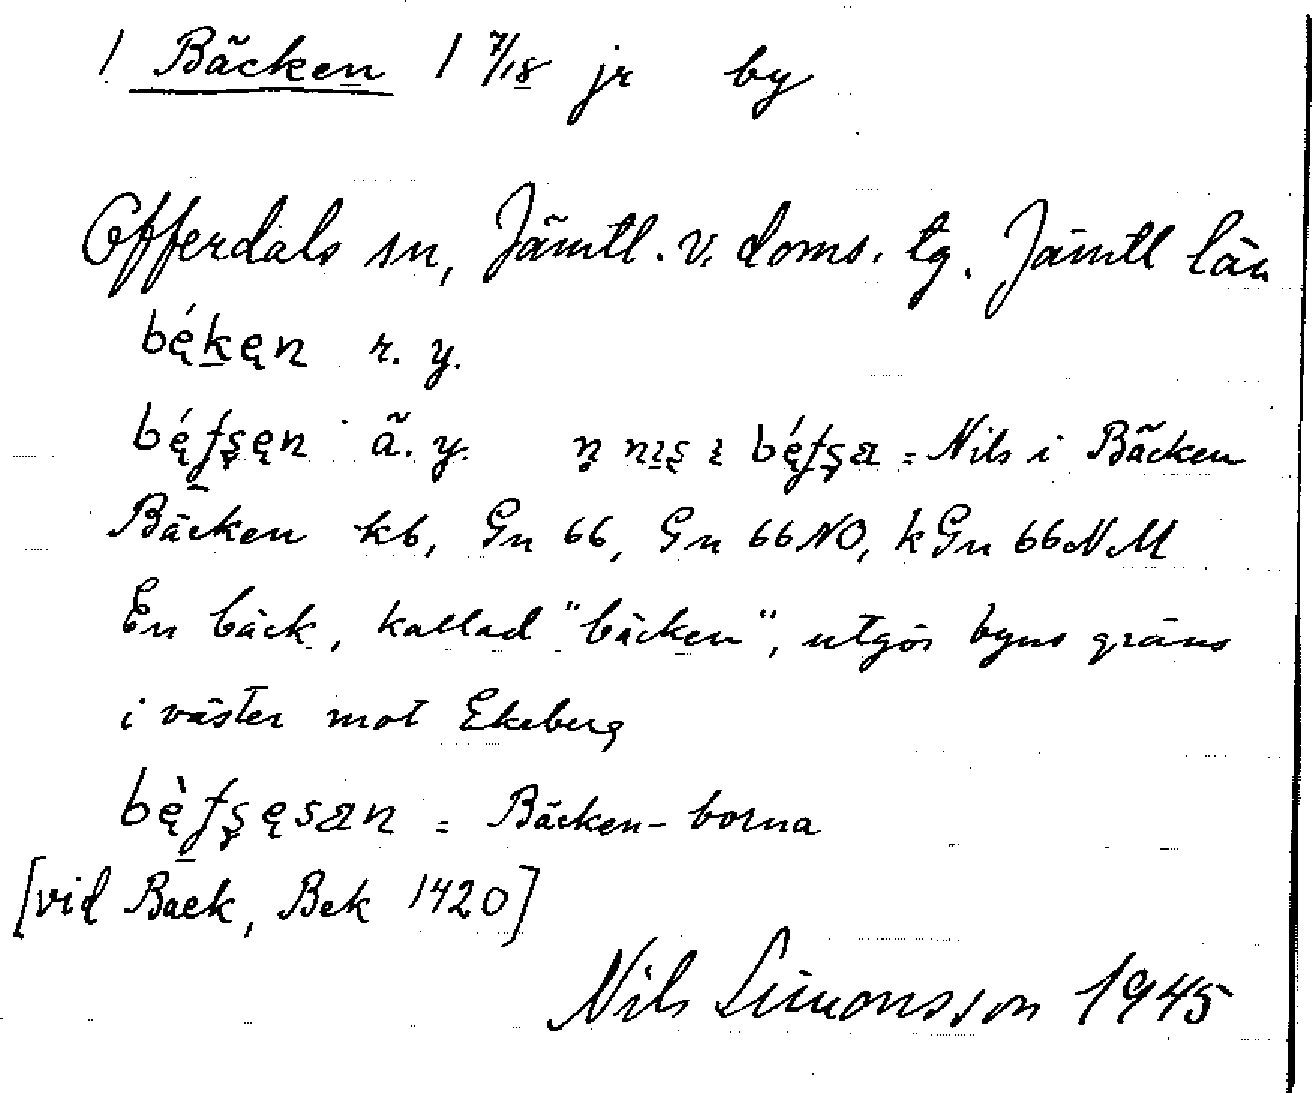 1 Bäcken 1 7/18 jr by
Offerdals sn, Jämtl. v. doms. tg. Jämtl län
bę́kęn r. y.
bę́fşęn ä. y. n nış ı bę́fşa = Nils i Bäcken
Bäcken kb, Gn 66, Gn 66 NO, kGn 66 NM
En bäck, kallad "bäcken", utgör byns gräns
i väster mot Ekeberg
bę̀fşęsan = Bäcken-borna
[vid Baek, Bek 1420]
Nils Simonsson 1945